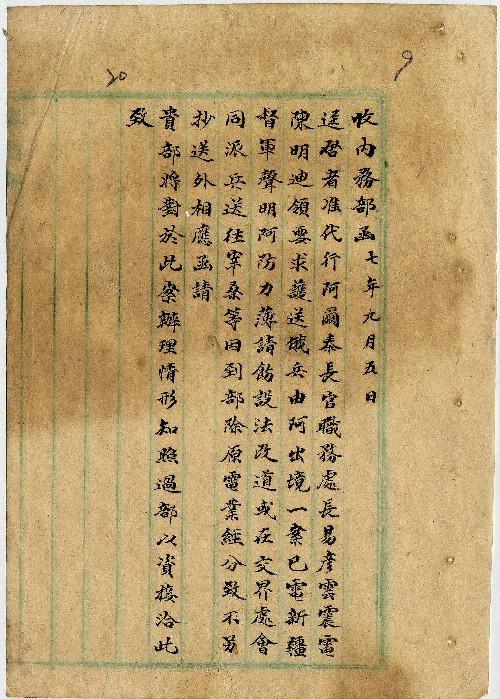 9
20
收内務部函 七年九月五日
逕啓者准代行阿爾泰長官職務處長易彦雲震電
陳明迪領要求護送俄兵由阿出境一案已電新疆
督軍聲明阿防力薄請飭設法改道或在交界處會
同派兵送往宰桑等因到部除原電業經分致不另
抄送外相應函請
貴部將對於此案辦理情形知照過部以資接洽此
致